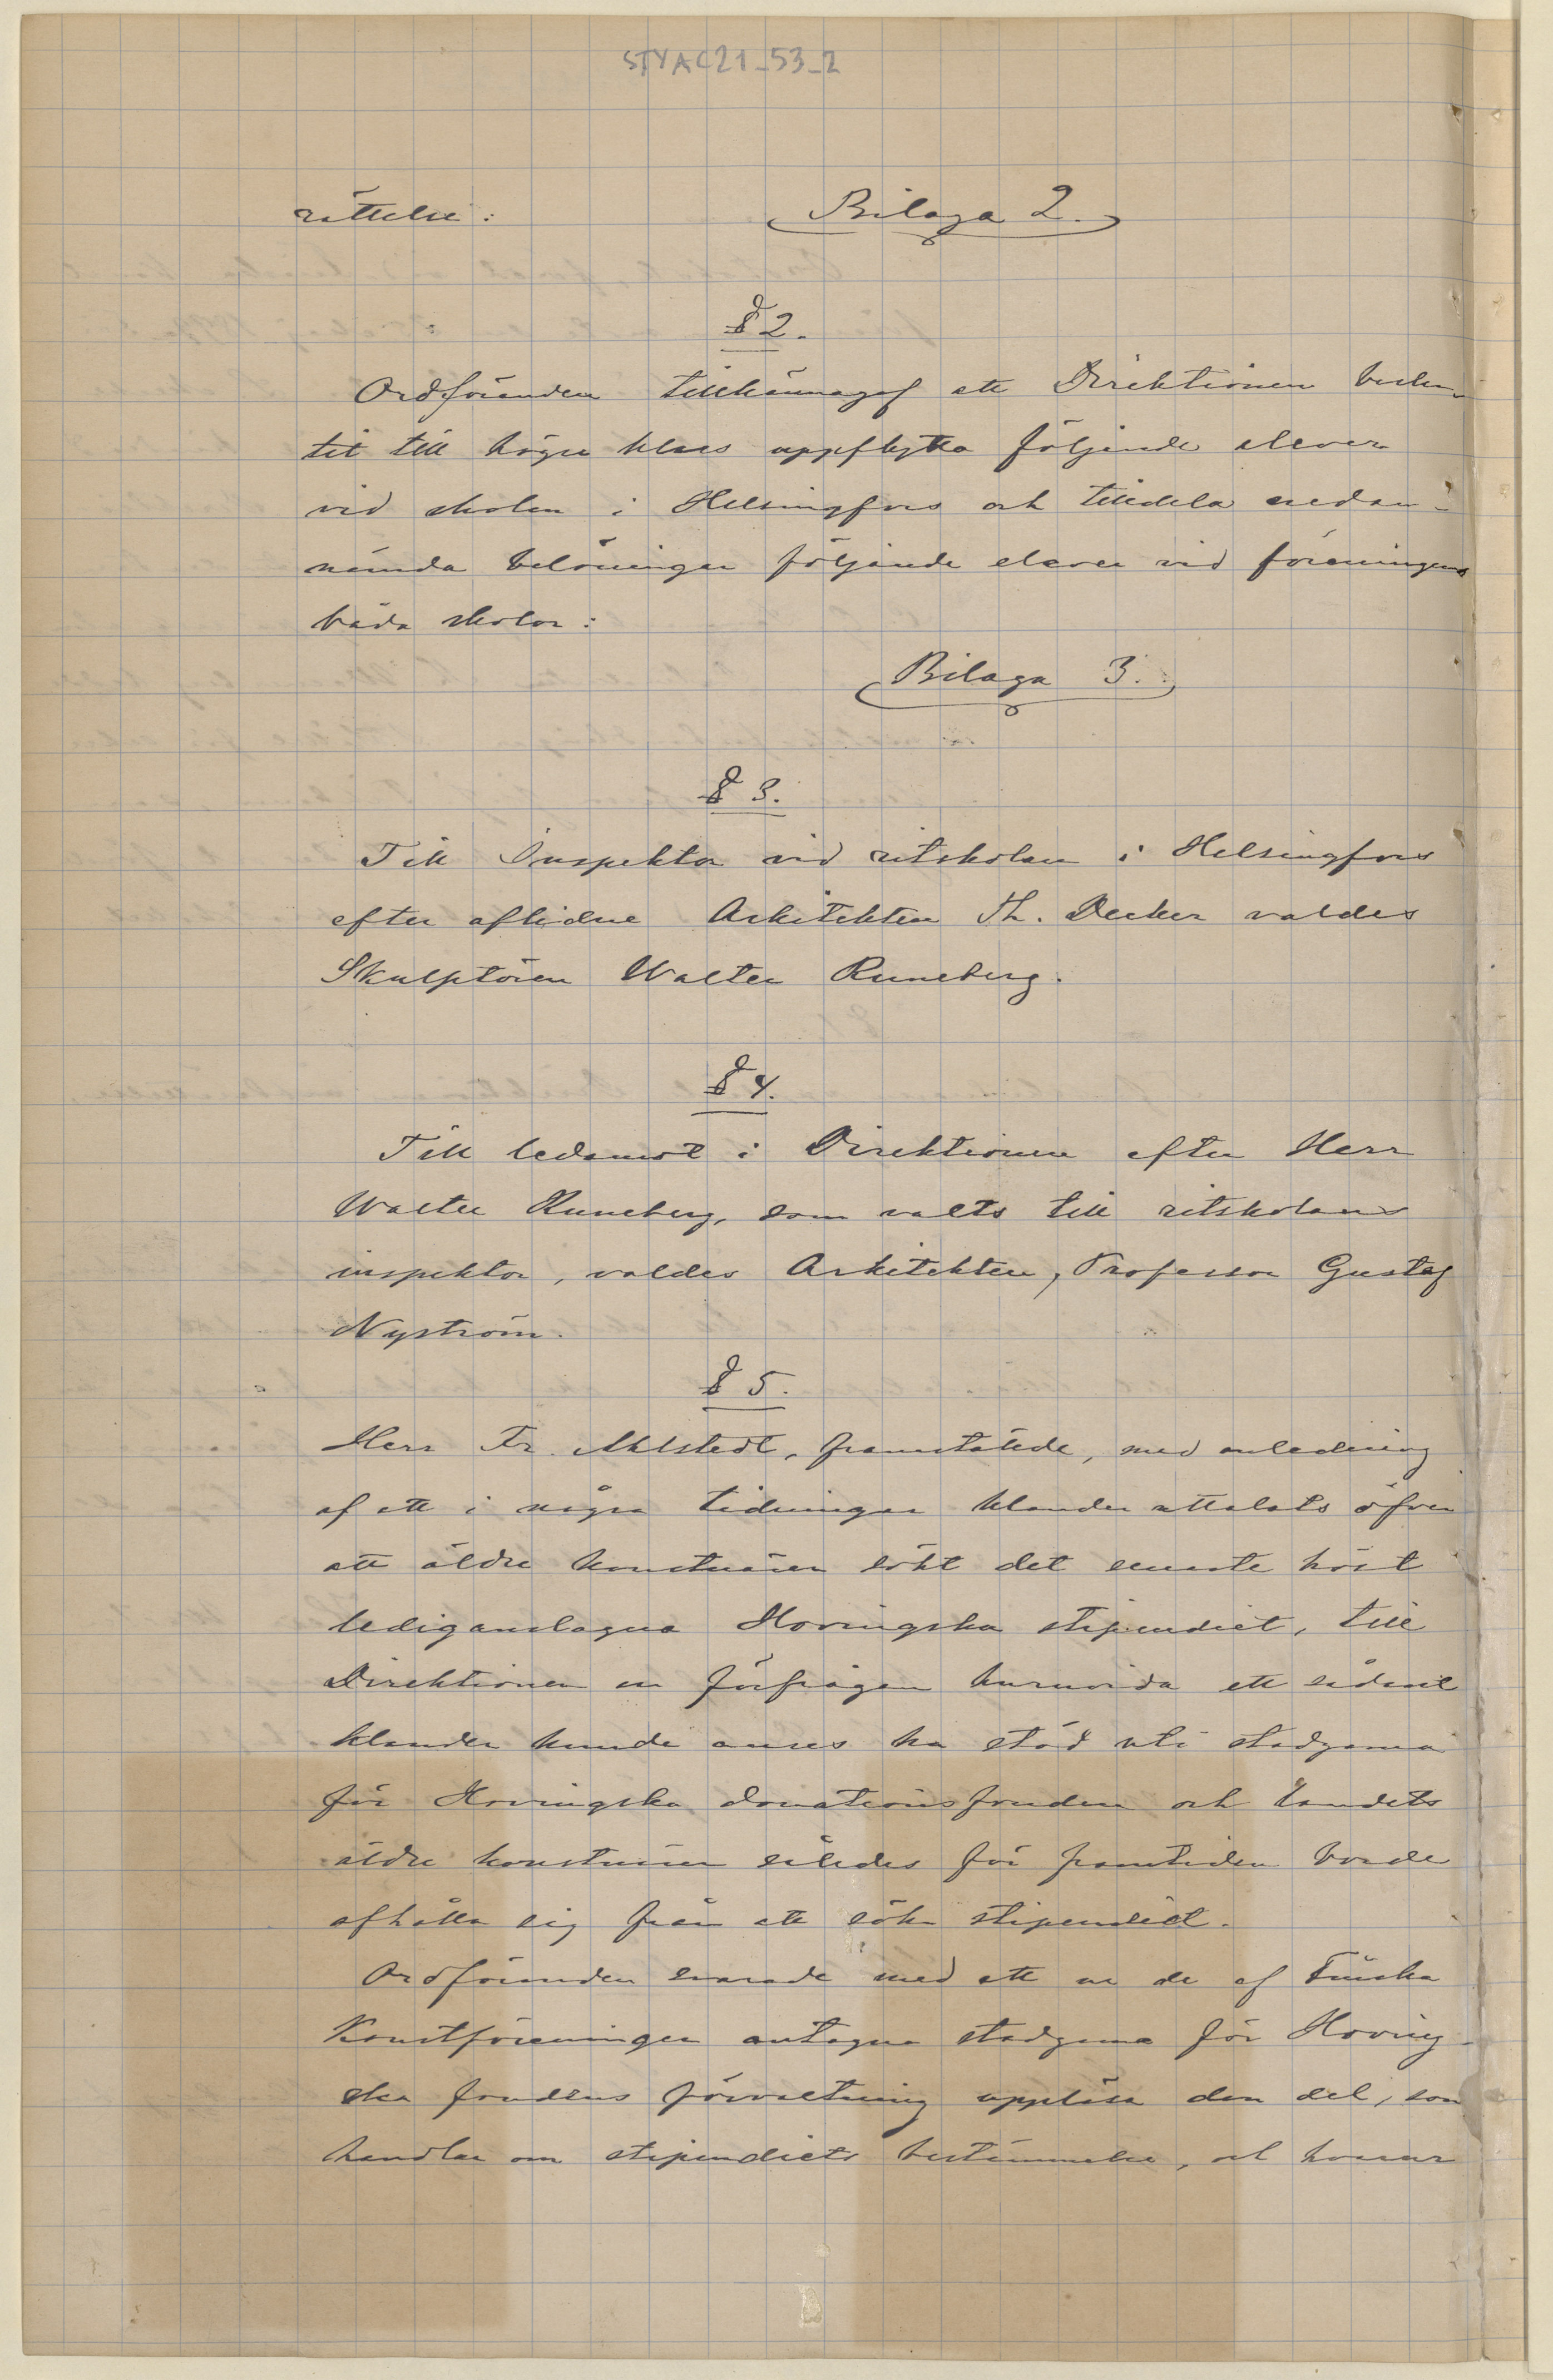 STYAC21_53_2
rättelse: Bilaga 2.
§ 2.
Ordföranden tillkännagaf att Direktionen beslu-
tit till högre klass uppflytta följande elever
vid skolan i Helsingfors och tilldela nedan-
nämnda belöningar följande elever vid föreningens
båda skolor:
Bilaga 3.
§ 3.
Till Inspektor vid ritskolan i Helsingfors
efter aflidne Arkitekten Th. Decker valdes
Skulptören Walter Runeberg.
§ 4.
Till ledamot i Direktionen efter Herr
Walter Runeberg, som valts till ritskolans
inspektor, valdes Arkitekten, Professor Gustaf
Nyström.
§ 5.
Herr Fr. Ahlstedt, framstälde, med anledning
af att i några tidningar klander uttalats öfver
att äldre konstnärer sökt det senaste höst
lediganslagna Hovingska stipendiet, till
Direktionen en förfrågan huruvida ett sådant
klander kunde anses ha stöd uti stadgarna
för Hovingska donationsfonden och landets
äldre konstnärer således för framtiden borde
afhålla sig från att söka stipendiet.
Ordföranden svarade med att ur de af Finska
Konstföreningen antagna stadgarna för Hoving-
ska fondens förvaltning uppläsa den del, som
handlar om stipendiets bestämmelse, och hvarur